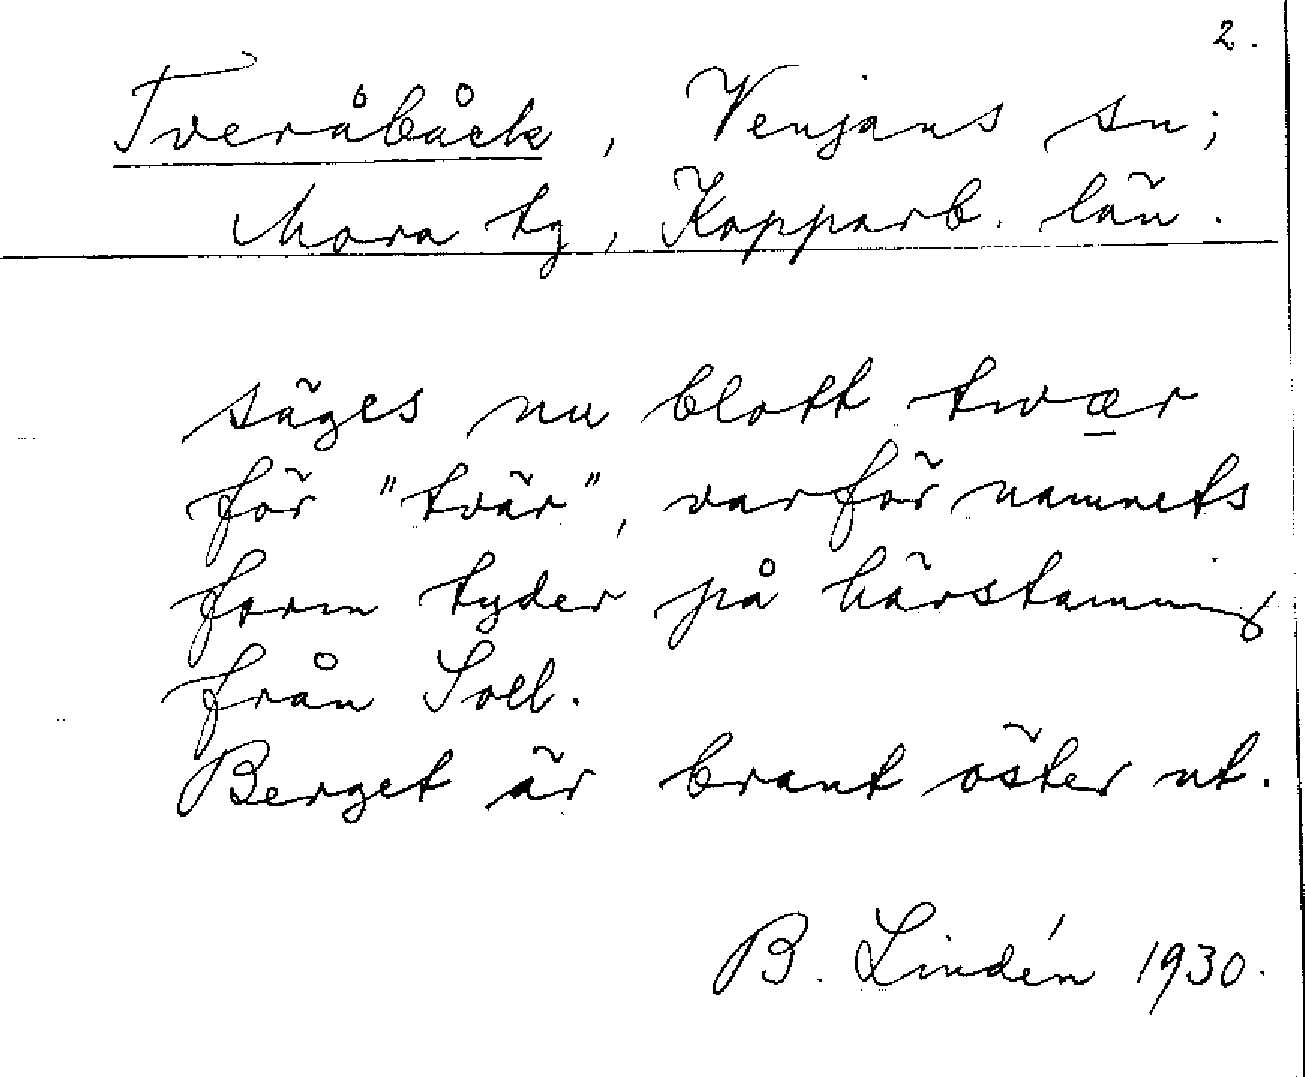 2.
Tveråbåck, Venjans sn;
Mora tg, Kopparb. län.
säges nu blott twær
för "tvär", varför namnets
form tyder på härstamning
från Soll.
Berget är brant öster ut.
B. Lindén 1930.